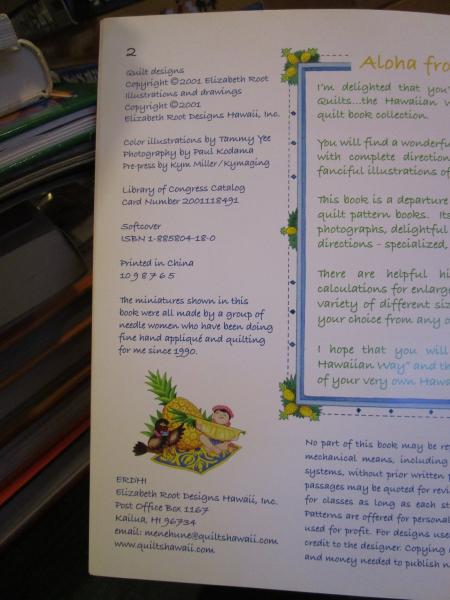 2
Quilt designs
Copyright ©2001 Elizabeth Root
Illustrations and drawings
Copyright ©2001
Elizabeth Root Designs Hawaii, Inc.
Color illustrations by Tammy Yee
Photography by Paul Kodama
Pre-press by Kym Miller/Kymaging
Library of Congress Catalog
Card Number 2001118491
Softcover
ISBN 1-885804-18-0
Printed in China
10 9 8 7 6 5
The miniatures shown in this
book were all made by a group of
needle women who have been doing
fine hand appliqué and quilting
for me since 1990.
ERDHI
Elizabeth Root Designs Hawaii, Inc.
Post Office Box 1167
Kailua, HI 96734
email: menehune@quiltshawaii.com
www.quiltshawaii.com
Aloha fro
I'm delighted that you'
Quilts...the Hawaiian
quilt book collection.
You will find a wonderfu
with complete direction
fanciful illustrations of
This book is a departure
quilt pattern books. Its
photographs, delightful
directions - specialized,
There are helpful hi
calculations for enlarg
variety of different siz
your choice from any o
I hope that you will
Hawaiian Way" and th
of your very own Hawa
No part of this book may be re
mechanical means, including
systems, without prior written p
passages may be quoted for revi
for classes as long as each st
Patterns are offered for personal
used for profit. For designs use
credit to the designer. Copying
and money needed to publish n